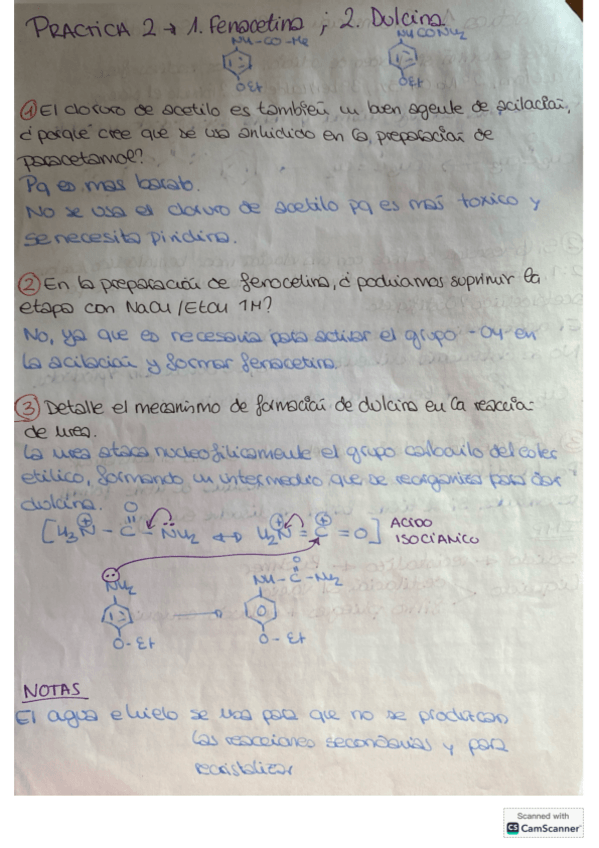 PRACTICA 2 → 1. Fenacetina ; 2. Dulcina
NH-CO-Me NHCONH2
OEt OEt
① El cloruro de acetilo es también un buen agente de acilación,
¿porque cree que se usa anhidrido en la preparación de
paracetamol?
Pq es mas barato.
No se usa el cloruro de acetilo pq es más toxico y
se necesita piridina.
② En la preparación de fenocetina, ¿podriamos suprimir la
etapa con NaOH/EtOH 1M?
No, ya que es necesaria para activar el grupo -OH en
la acilación y formar fenacetina.
③ Detalle el mecanismo de formación de dulcina en la reacció-
de urea.
La urea ataca nucleofilicamente el grupo carbonilo del ester
etilico, formando un intermedio que se reorganiza para dar
dulcina.
O
[H3N⊕ - C - NH2 ↔ H2N⊕ = C⊕ = O] ACIDO
ISOCIANICO
O
NH2 NH-C-NH2
O-Et O-Et
NOTAS
El agua e hielo se usa para que no se produzcan
las reacciones secundarias y para
recristalizar
Scanned with
CS CamScanner